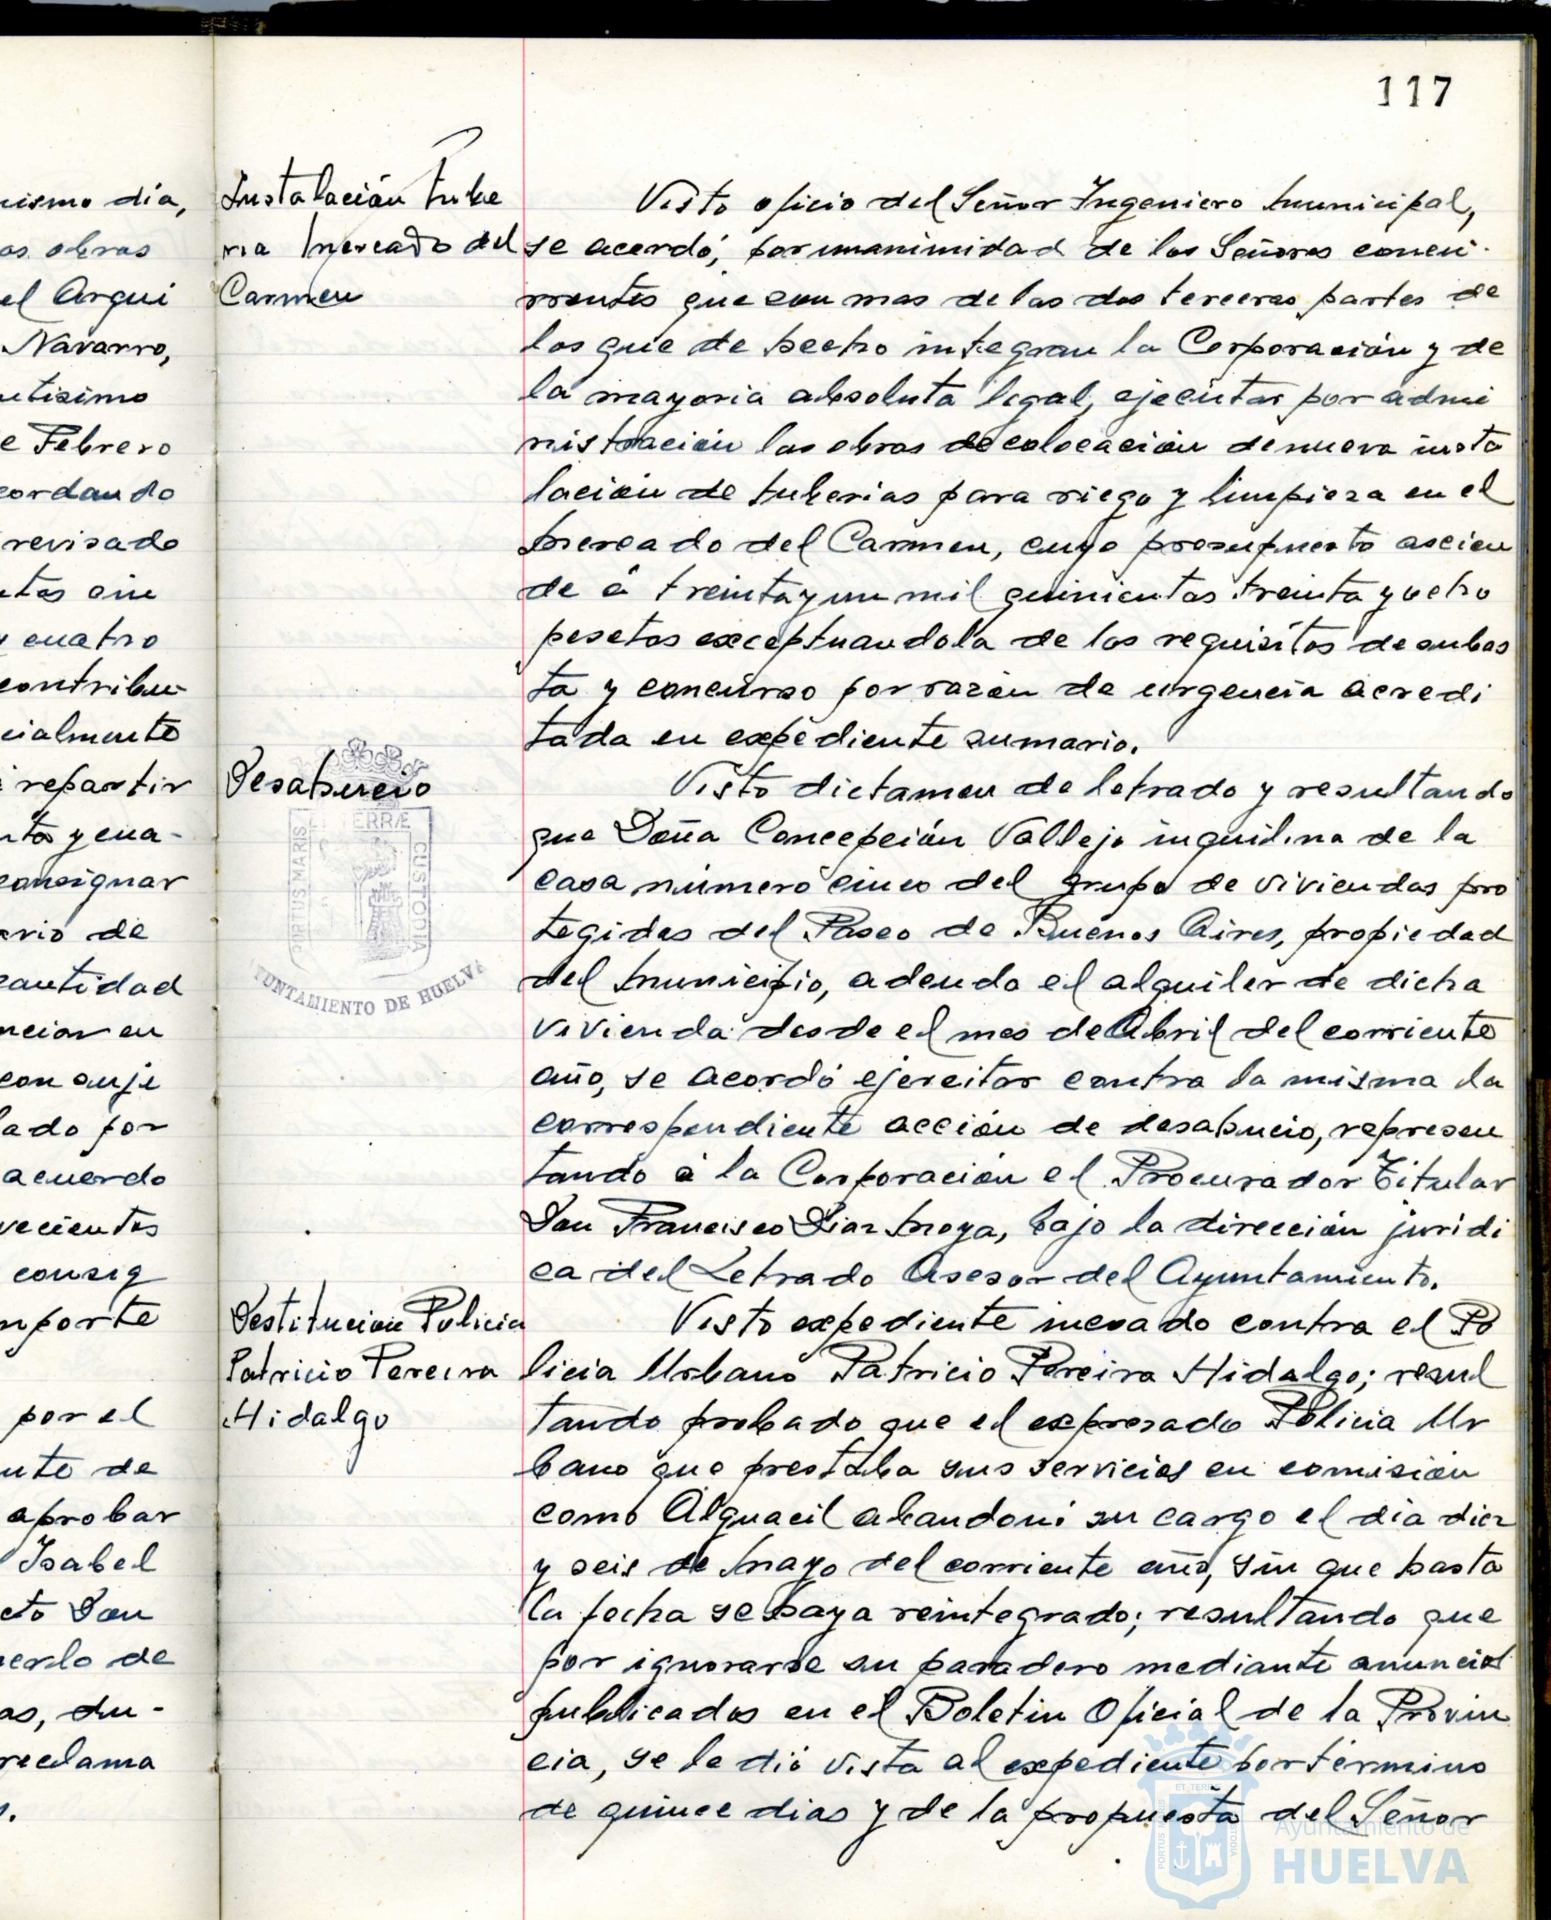 117
mismo dia,
as obras
el Arqui
Navarro,
ntisimo
e Febrero
cordando
revisado
ntas cin
y cuatro
contribu-
cialmente
repartir
nta y cua-
consignar
ario de
cantidad
ncion en
con suje
lado por
acuerdo
vecientos
consig
mporte
por el
nto de
aprobar
Isabel
cto Don
nerlo de
as, du-
reclama
Instalación tube
ria Mercado del
Carmen
Visto oficio del Señor Ingeniero Municipal,
se acordó, por unanimidad de los Señores concu-
rrentes que son mas de las dos terceras partes de
los que de hecho integran la Corporación y de
la mayoria absoluta legal, ejecutar por admi
nistración las obras de colocación de nueva insta
lación de tuberias para riego y limpieza en el
Mercado del Carmen, cuyo presupuesto ascien
de á treinta y un mil quinientas treinta y ocho
pesetas exceptuandola de los requisitos de subas
ta y concurso por razón de urgencia acredi
tada en expediente sumario.
Desahucio
Visto dictamen de letrado y resultando
que Doña Concepción Vallejo inquilina de la
casa número cinco del grupo de viviendas pro
tegidas del Paseo de Buenos Aires, propiedad
del Municipio, adeuda el alquiler de dicha
vivienda desde el mes de Abril del corriente
año, se acordó ejercitar contra la misma la
correspondiente acción de desahucio, represen
tando á la Corporación el Procurador Titular
Don Francisco Diaz Moya, bajo la dirección juridi
ca del Letrado Asesor del Ayuntamiento.
Destitución Policia
Patricio Pereira
Hidalgo
Visto expediente incoado contra el Po
licia Urbano Patricio Pereira Hidalgo; resul
tando probado que el expresado Policia Ur
bano que prestaba sus servicios en comisión
como Alguacil abandonó su cargo el dia diez
y seis de Mayo del corriente año, sin que hasta
la fecha se haya reintegrado; resultando que
por ignorarse su paradero mediante anuncios
publicados en el Boletin Oficial de la Provin
cia, se le dió vista al expediente por término
de quince dias y de la propuesta del Señor
PORTUS MARIS
ET TERRÆ
CUSTODIA
AYUNTAMIENTO DE HUELVA
PORTUS MARIS
ET TERRÆ
CUSTODIA
Ayuntamiento de
HUELVA